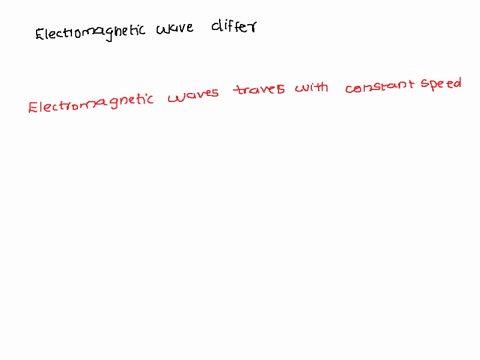 Electromagnetic wave differ
Electromagnetic waves travels with constant speed